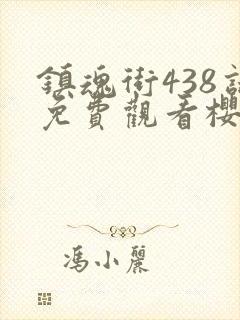 鎮魂街438
免費觀看櫻
馮小麗